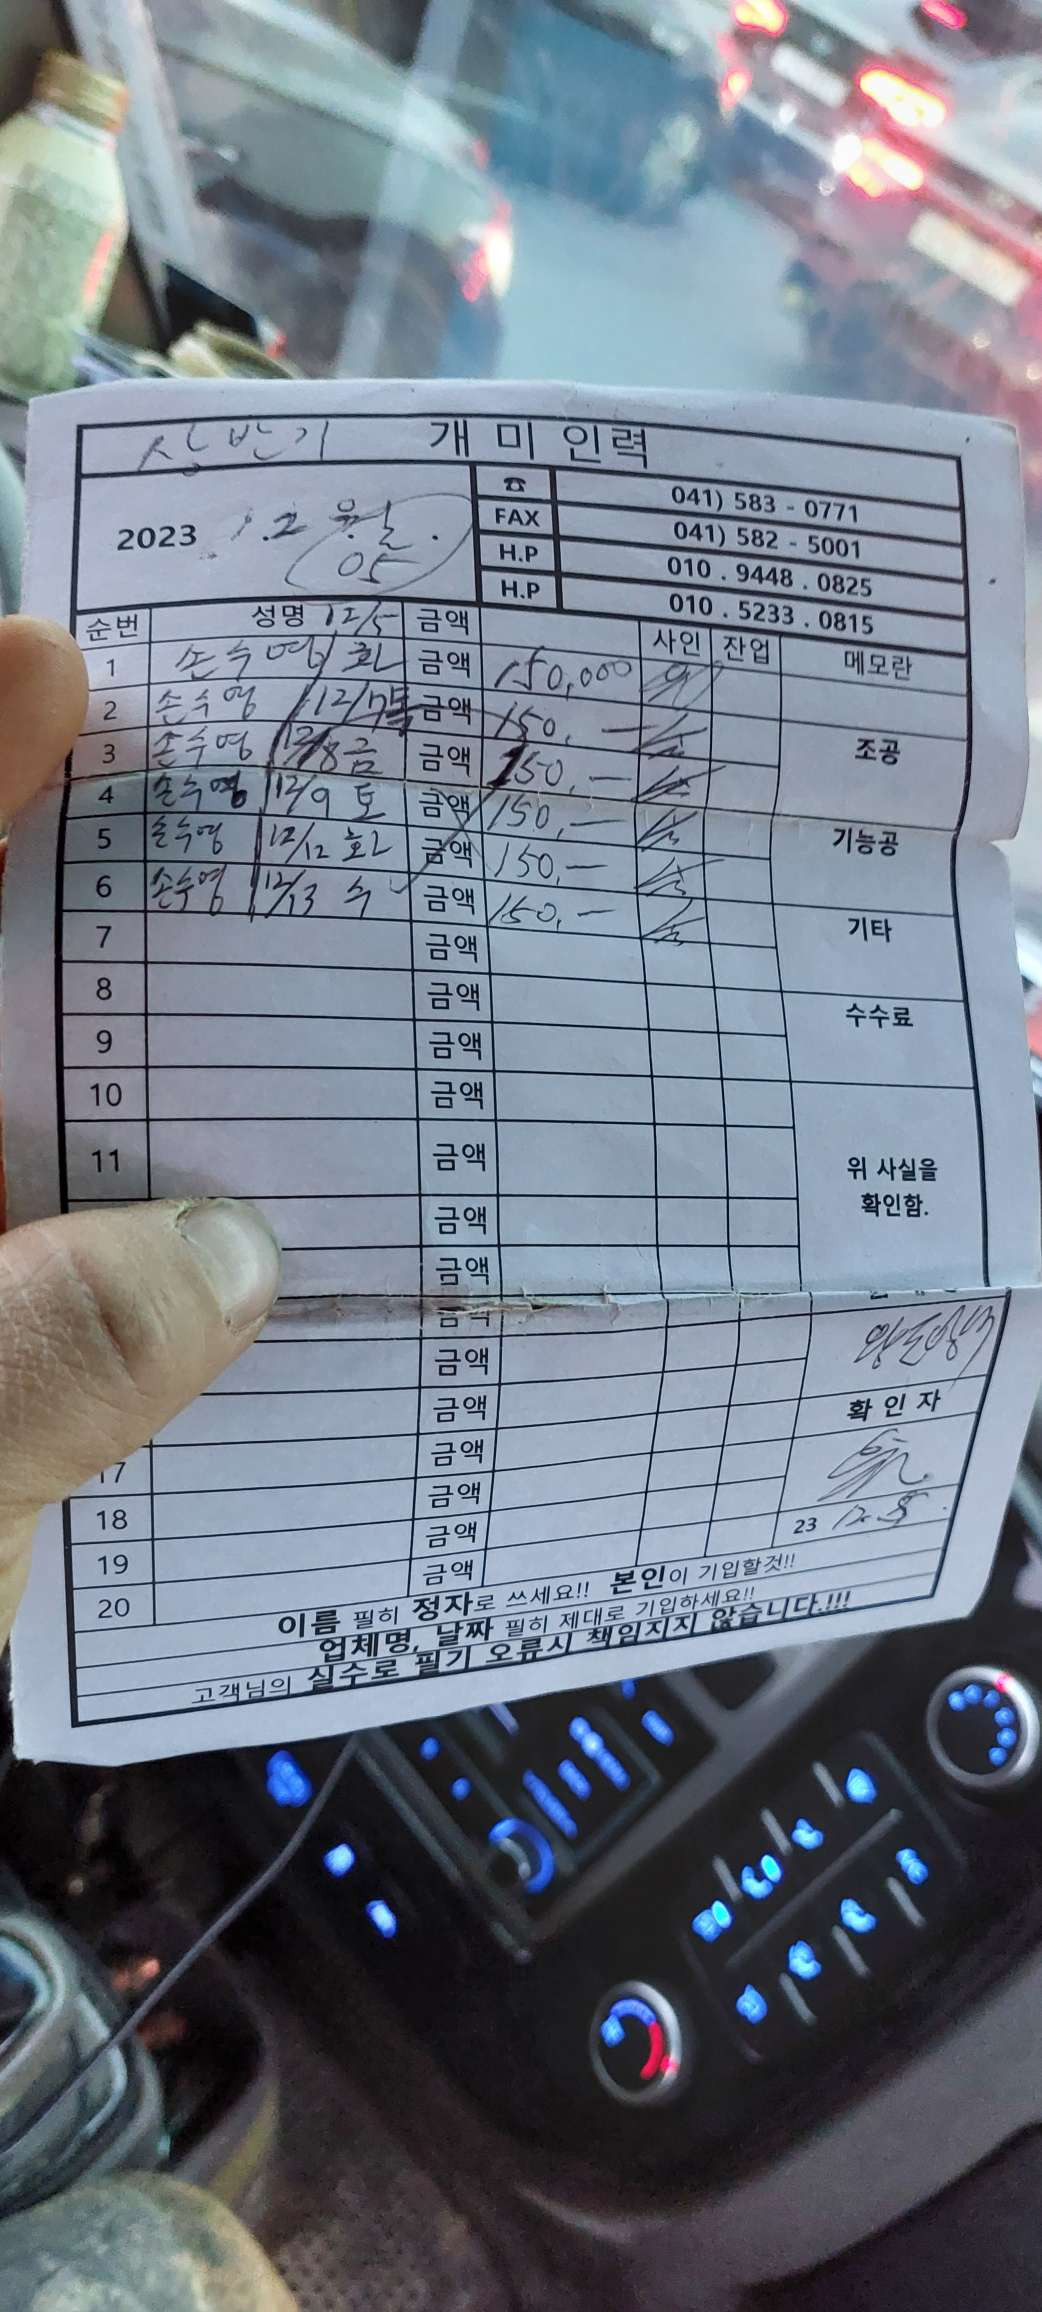 상반기 개미인력
2023 12월.
05
☎ 041) 583 - 0771
FAX 041) 582 - 5001
H.P 010 . 9448 . 0825
H.P 010 . 5233 . 0815
순번 성명 12/5 금액 사인 잔업 메모란
1 손수영 화 금액 150,000
2 손수영 12/7목 금액 150,—
3 손수영 12/8금 금액 150,— 조공
4 손수영 12/9 토 금액 150,—
5 손수영 12/12 화 금액 150,— 기능공
6 손수영 12/13 수 금액 150,—
7 금액 기타
8 금액
9 금액 수수료
10 금액
11 금액 위 사실을
확인함.
금액
금액
금액
금액
금액 확 인 자
17 금액
18 금액
19 금액 23 12.5.
20 금액
이름 필히 정자로 쓰세요!! 본인이 기입할것!!
업체명, 날짜 필히 제대로 기입하세요!!
고객님의 실수로 필기 오류시 책임지지 않습니다.!!!